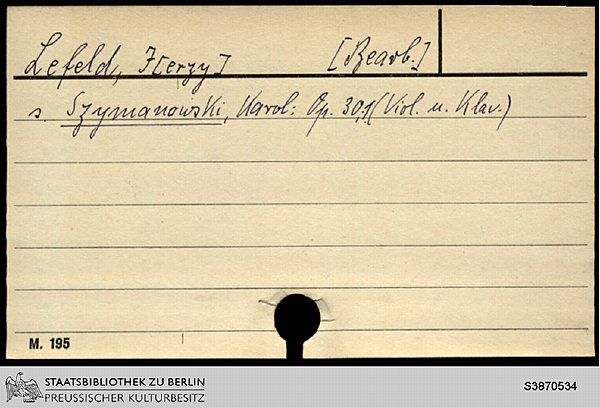 Lefeld, J[erzy] [Bearb.]
s. Szymanowski, Karol: Op. 30,1 (Viol. u. Klav.)
M. 195
STAATSBIBLIOTHEK ZU BERLIN
PREUSSISCHER KULTURBESITZ
S3870534